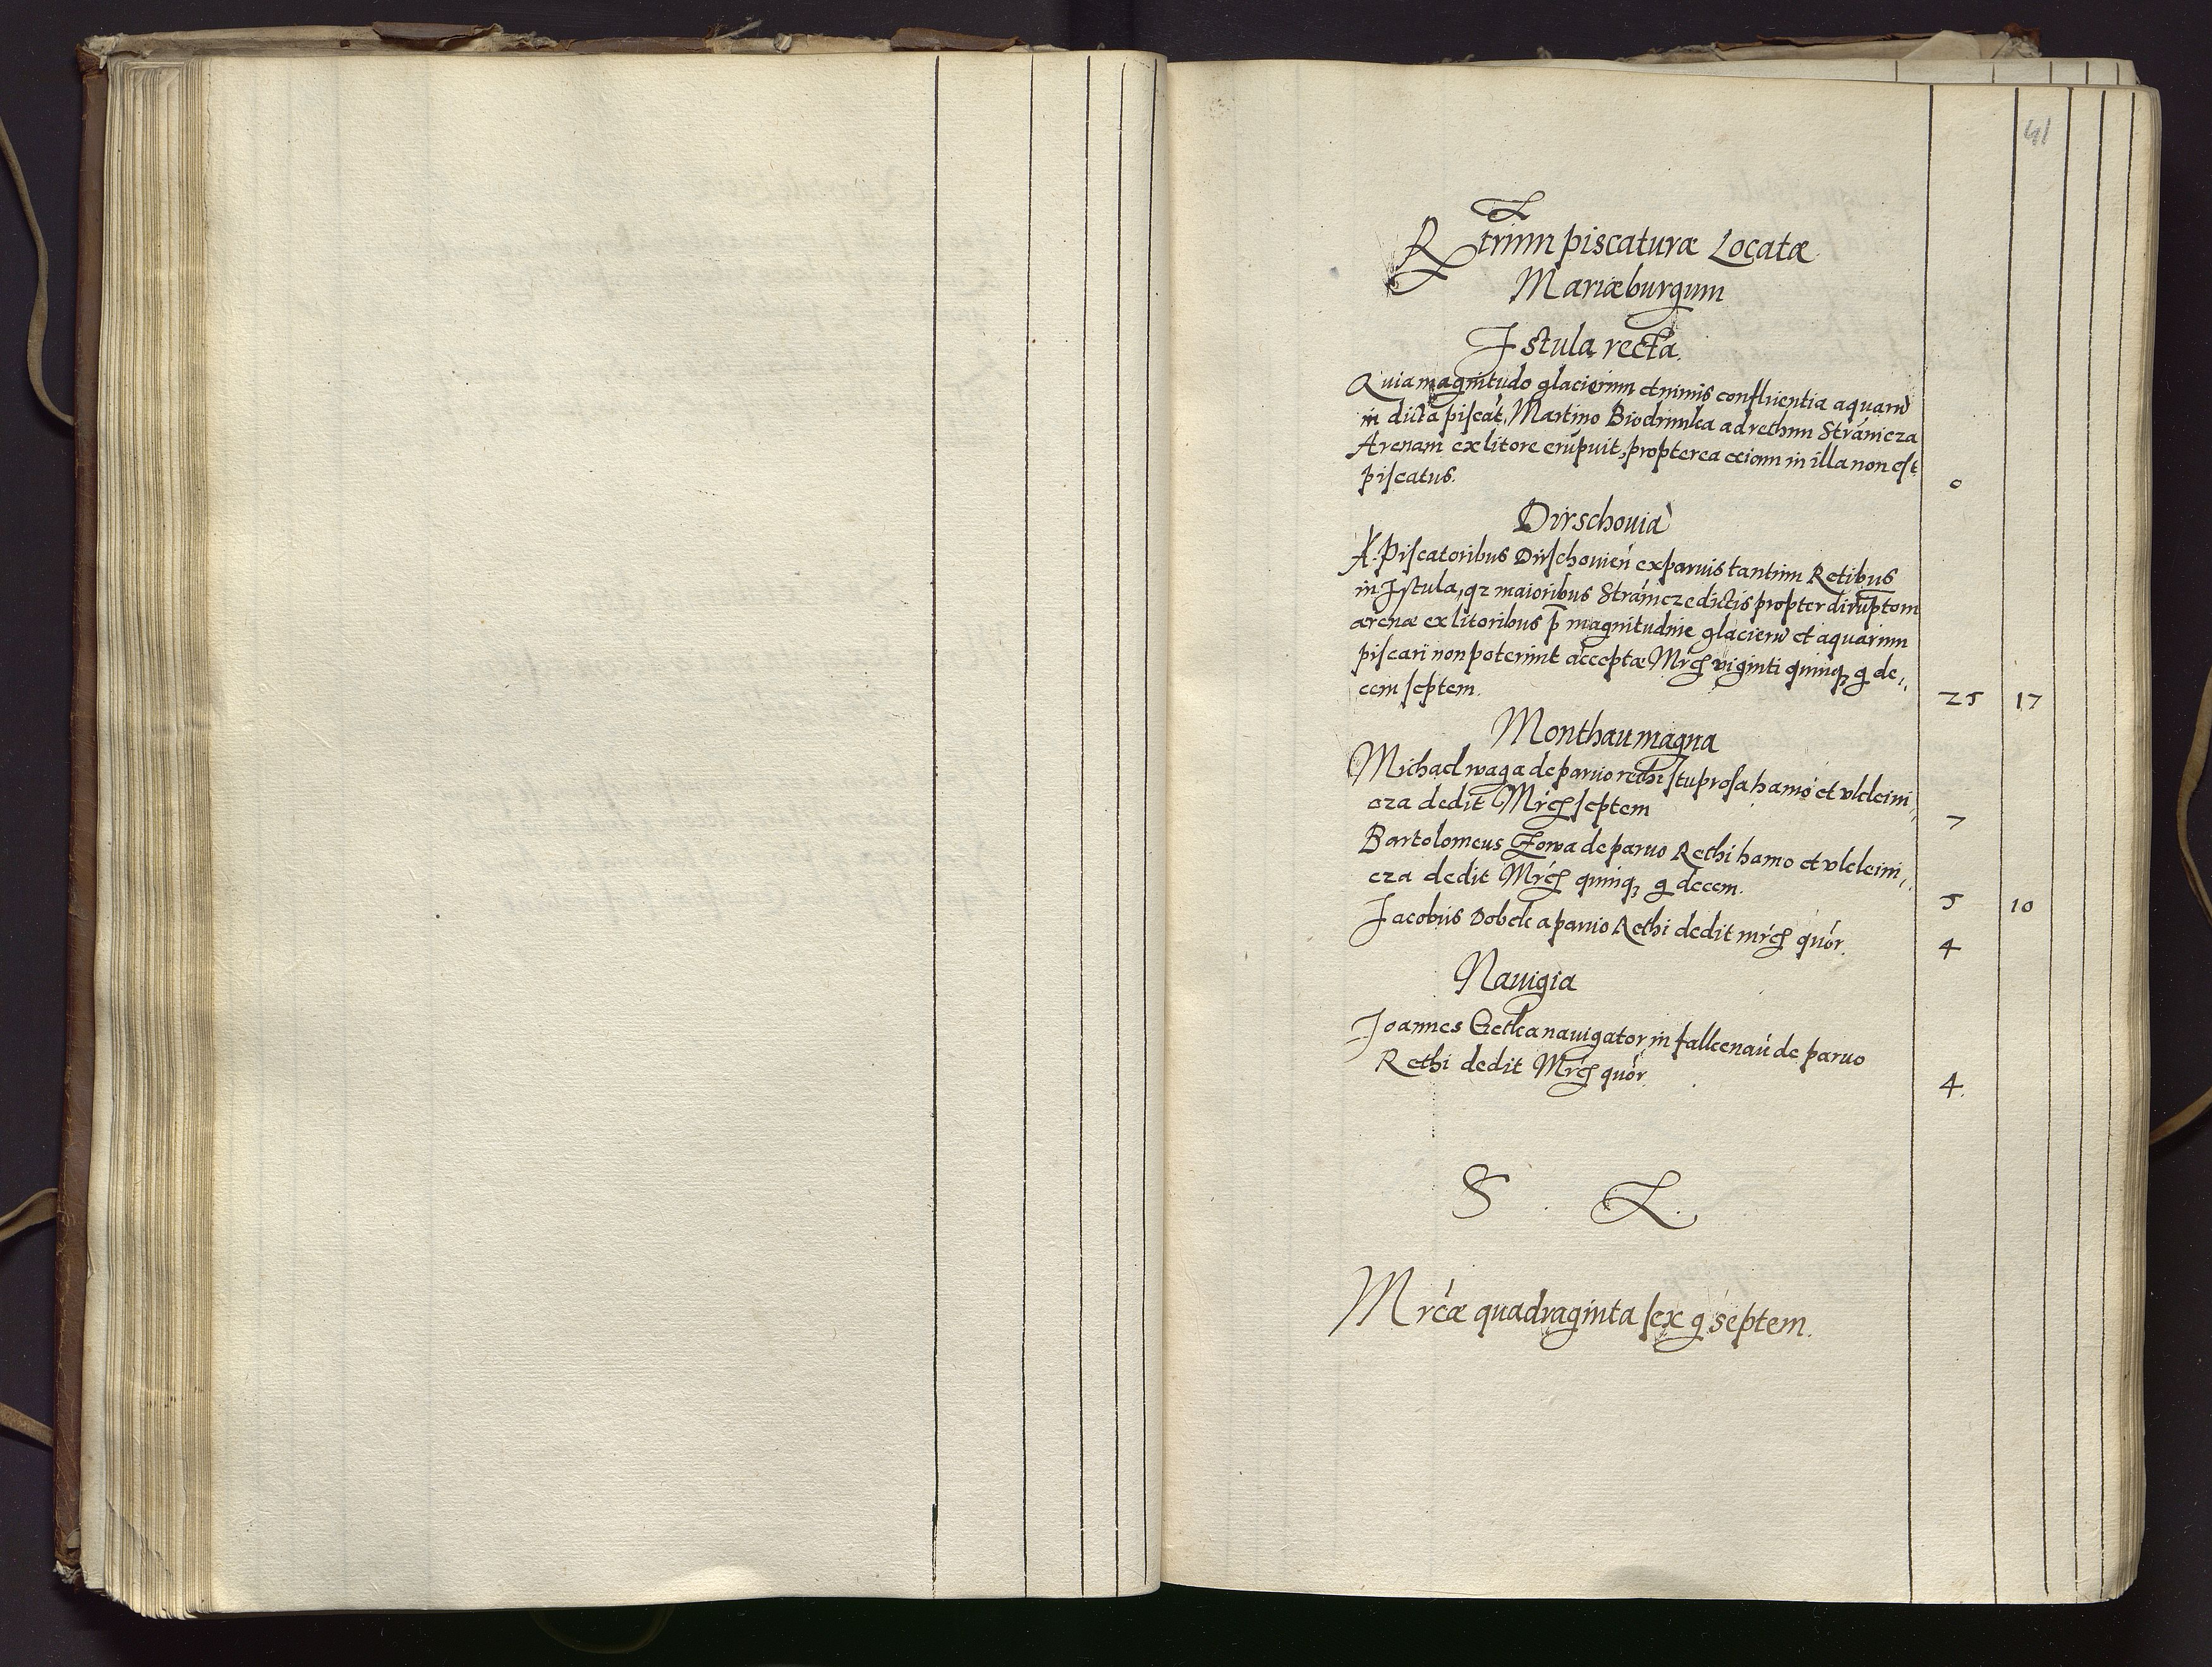 41
Rtrum piscaturæ Locatæ
Mariæburgum
Istula recta.
Quia magnitudo glacierum et nimis confluentia aquarū
in dicta piscat. Martino Biodrimka ad rethm Stránicza
Arenam ex litore erupuit, propterea eciam in illa non est
piscatus. 0
Dirschouia
A Piscatoribus Dirschouień ex paruis tantum Retibus
in Istula, qz maioribus Stránicze dictis propter diruptom
arenæ ex litoribus p̄ magnitudine glacierū et aquarum
piscari non poterint acceptæ Mrcȩ viginti quinqȝ g de„
cem septem. 25 17
Monthau magna
Michael waga de paruo rethi stuprosa hamo et vkleini„
cza dedit Mrcȩ septem 7
Bartolomeus Zowa de paruo Rethi hamo et vkleini„
cza dedit Mrcȩ quinqȝ g decem. 5 10
Jacobus Dobek a paruo Rethi dedit mrcȩ quór. 4
Nauigia
Joannes Getka nauigator in falkenaú de paruo
Rethi dedit Mrcȩ quór. 4.
S . L.
Mrcæ quadraginta sex g septem.